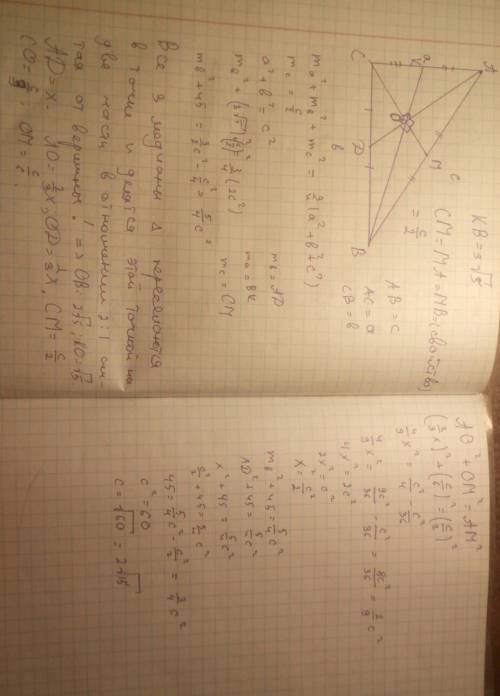 A
a
K
C
O
M
c
D
b
B
KB = 3√5
CM = MA = MB = (свойство)
= c/2
AB = c
AC = a
CB = b
m_a² + m_b² + m_c² = 3/4 (a² + b² + c²)
m_c = c/2
a² + b² = c²
m_b = AD
m_a = BK
m_c = CM
m_b² + 45 = 3/2 c² - c²/4 = 5/4 c²
Все 3 медианы Δ пересекаются
в точке и делятся этой точкой на
две части в отношении 2:1 счи-
тая от вершины. => OB = 2√5; KO = √5.
AD = x. AO = 2/3 x; OD = 1/3 x. CM = c/2
AO² + OM² = AM²
(2/3 x)² + (c/6)² = (c/2)²
4/9 x² = c²/4 - c²/36
4/9 x² = 9c²/36 - c²/36 = 8c²/36 = 2/9 c²
4x² = 2c²
2x² = c²
x² = c²/2
m_b² + 45 = 5/4 c²
AD² + 45 = 5/4 c²
x² + 45 = 5/4 c²
c²/2 + 45 = 5/4 c²
45 = 5/4 c² - c²/2 = 3/4 c²
c² = 60
c = √60 = 2√15